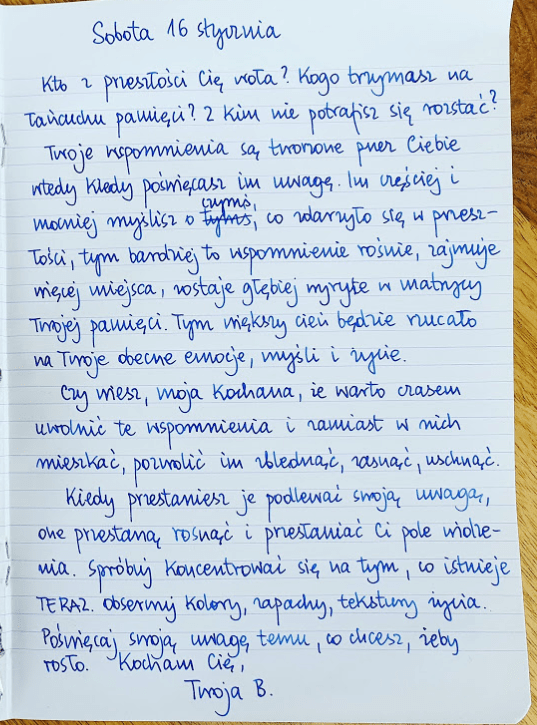 Sobota 16 stycznia
Kto z przeszłości Cię woła? Kogo trzymasz na
łańcuchu pamięci? Z kim nie potrafisz się rozstać?
Twoje wspomnienia są tworzone przez Ciebie
wtedy kiedy poświęcasz im uwagę. Im częściej i
czymś,
mocniej myślisz o tymś, co zdarzyło się w przesz-
łości, tym bardziej to wspomnienie rośnie, zajmuje
więcej miejsca, zostaje głębiej wyryte w matrycy
Twojej pamięci. Tym większy cień będzie rzucało
na Twoje obecne emocje, myśli i życie.
Czy wiesz, moja Kochana, że warto czasem
uwolnić te wspomnienia i zamiast w nich
mieszkać, pozwolić im zblednąć, zasnąć, uschnąć.
Kiedy przestaniesz je podlewać swoją uwagą,
one przestaną rosnąć i przesłaniać Ci pole widze-
nia. Spróbuj koncentrować się na tym, co istnieje
TERAZ. Obserwuj kolory, zapachy, tekstury życia.
Poświęcaj swoją uwagę temu, co chcesz, żeby
rosło. Kocham Cię,
Twoja B.